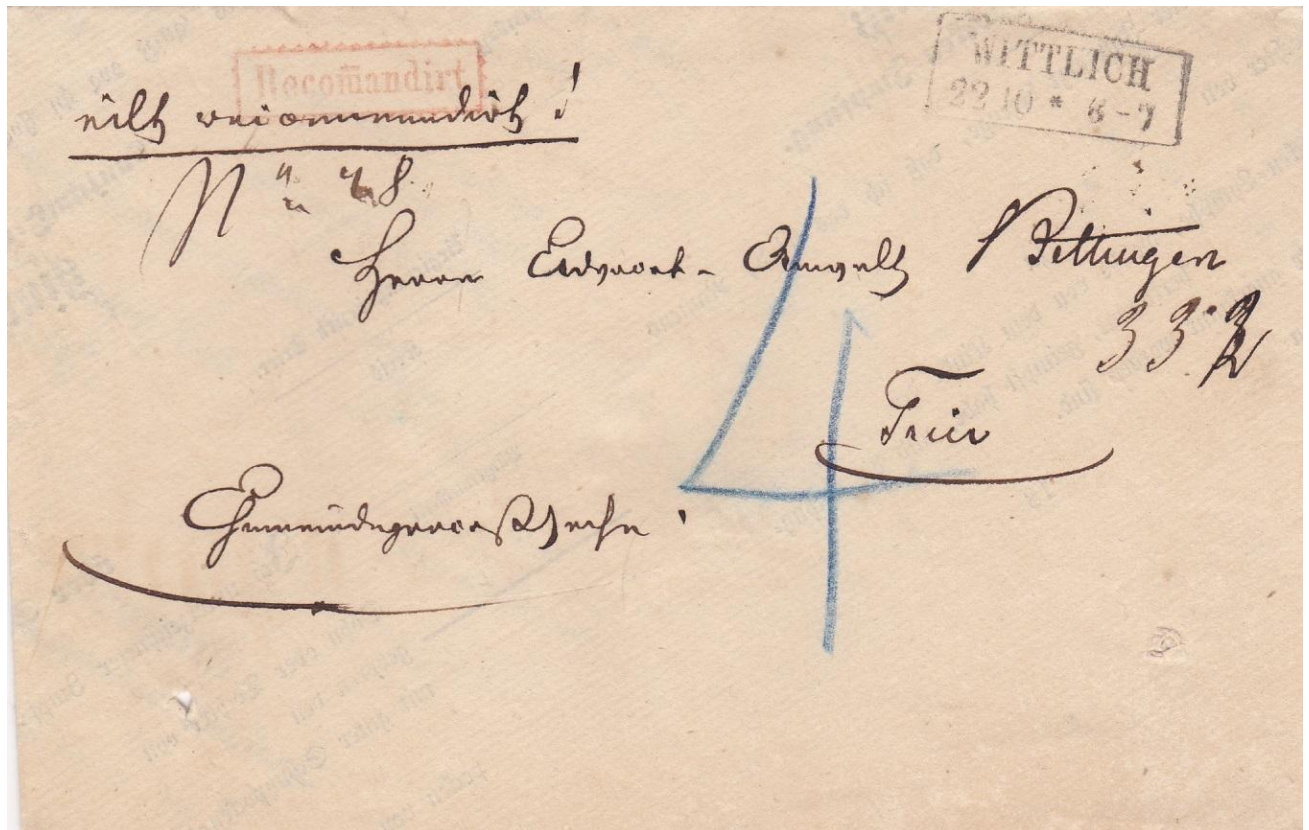 Recom̄andirt
WITTLICH
22 10 * 6-7
eilt recommandirt!
No 48
Herrn Advocat-Anwalt Bettingen
33
Trier
4
Gemeindeprocessache